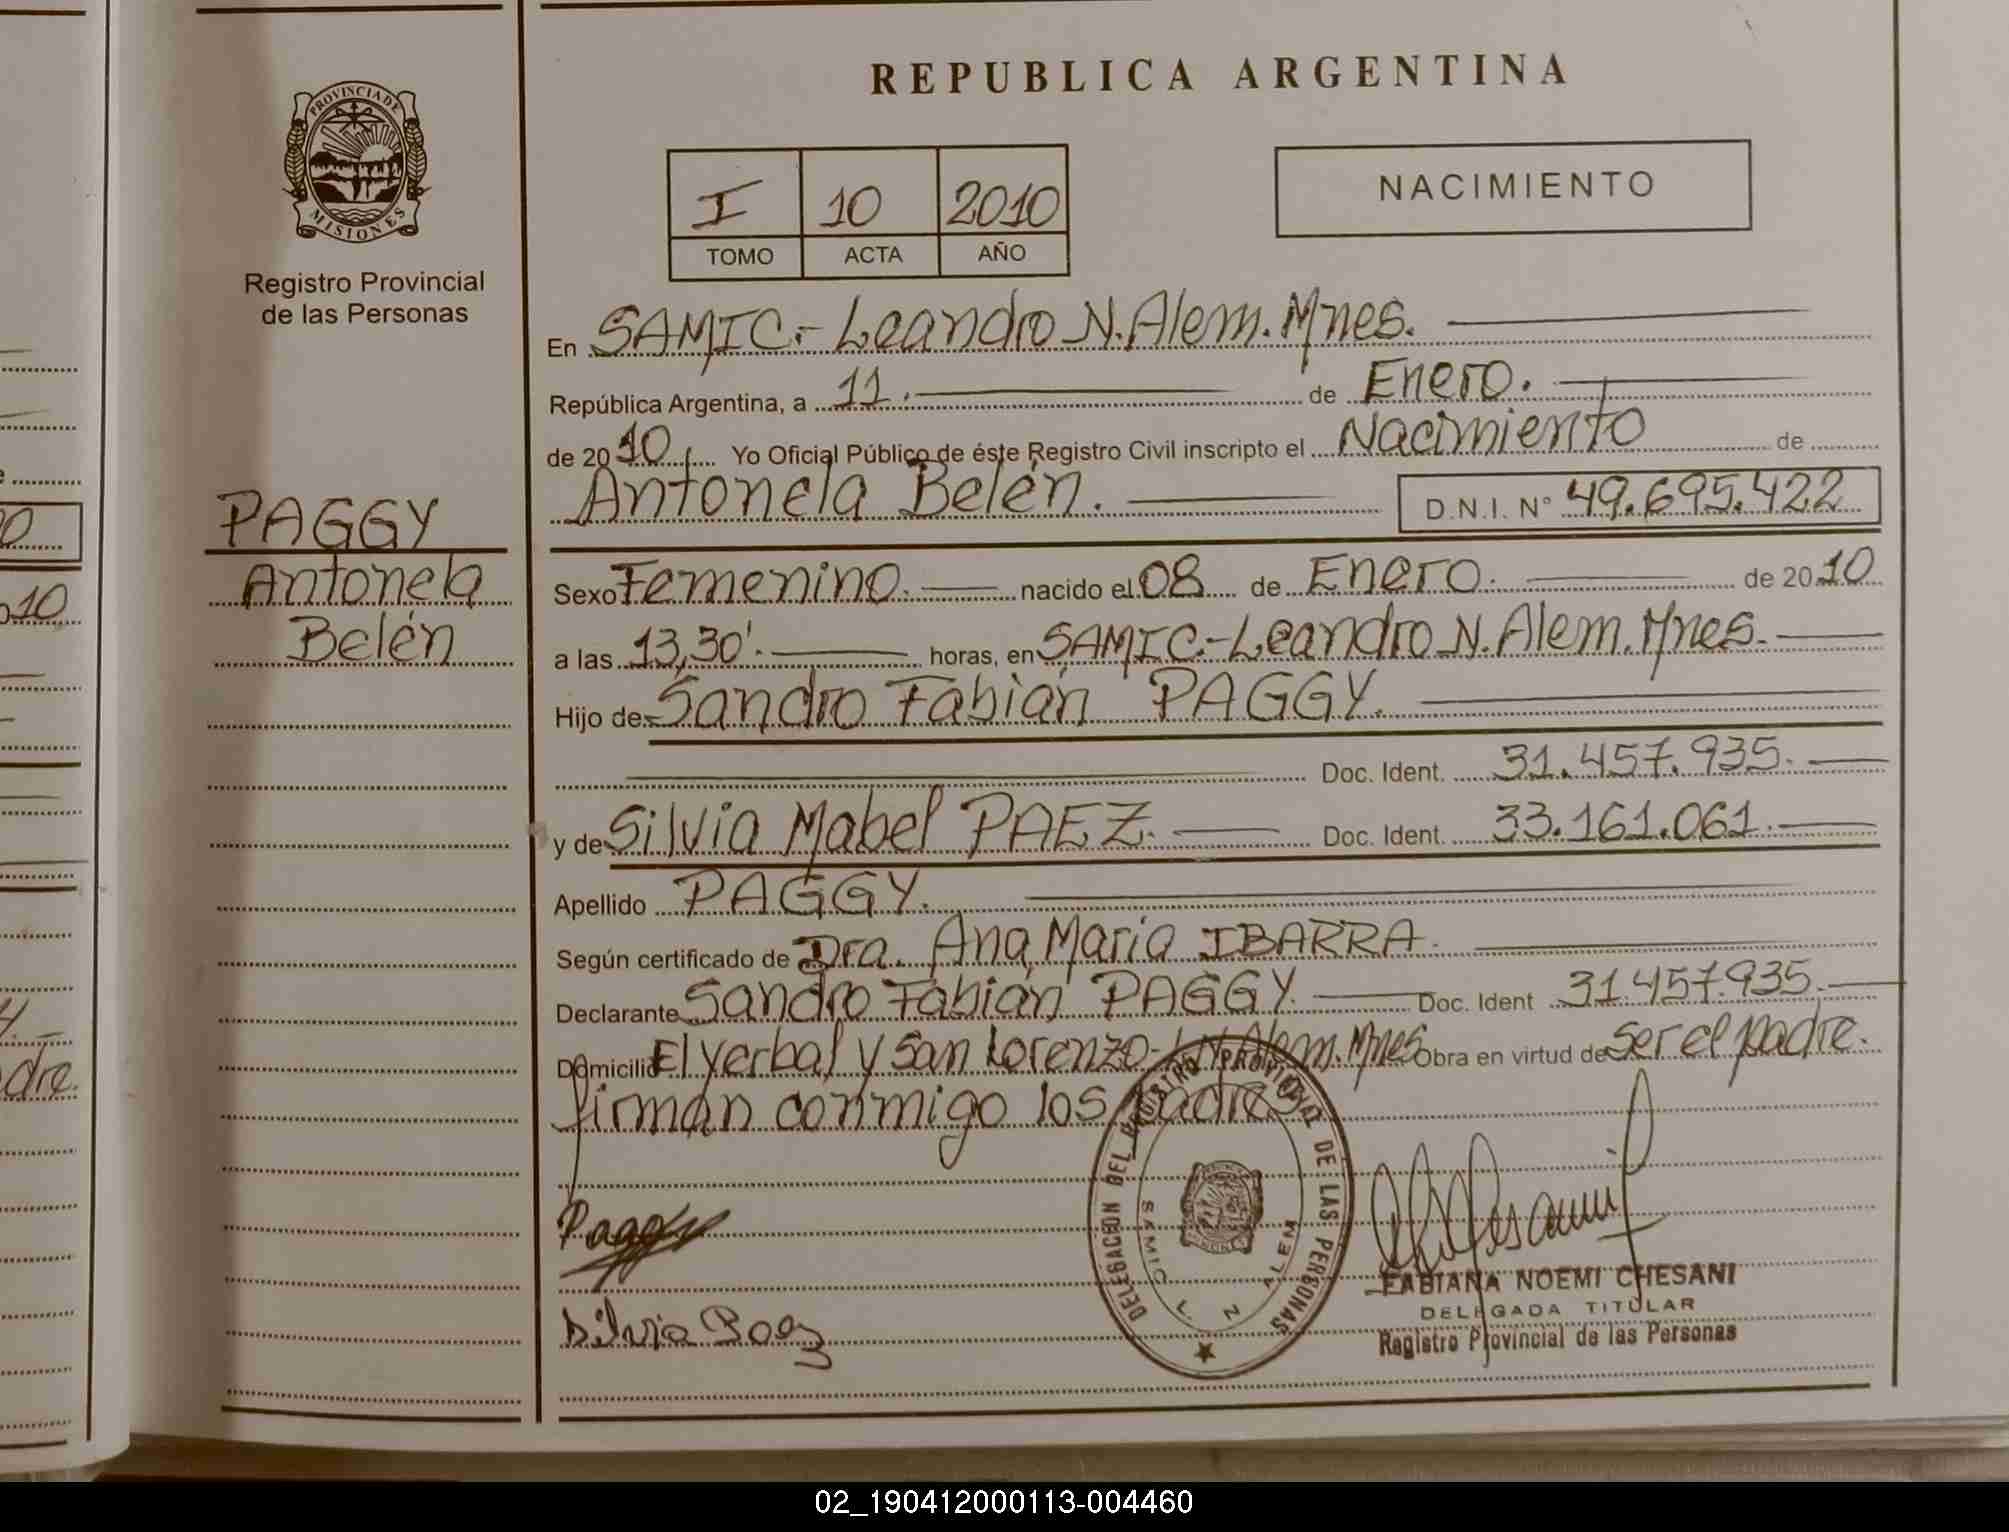 REPUBLICA ARGENTINA
PROVINCIA DE
MISIONES
Registro Provincial
de las Personas
I 10 2010
TOMO ACTA AÑO
NACIMIENTO
En SAMIC.- Leandro N. Alem. Mnes.
República Argentina, a 11. de Enero.
de 2010 Yo Oficial Público de éste Registro Civil inscripto el Nacimiento de
Antonela Belén. D.N.I. N° 49.695.422
PAGGY
Antonela
Belén
Sexo Femenino. nacido el 08 de Enero. de 2010
a las 13,30'. horas, en SAMIC.- Leandro N. Alem. Mnes.
Hijo de Sandro Fabián PAGGY.
Doc. Ident. 31.457.935.
y de Silvia Mabel PAEZ. Doc. Ident. 33.161.061.
Apellido PAGGY.
Según certificado de Dra. Ana Maria IBARRA.
Declarante Sandro Fabián PAGGY. Doc. Ident 31.457.935.
Domicilio El Yerbal y San Lorenzo- L.N. Alem. Mnes Obra en virtud de ser el padre.
firman conmigo los padres
DELEGACION DEL REGISTRO PROVINCIAL DE LAS PERSONAS
SAMIC L N ALEM
Paggy
Silvia Paez
FABIANA NOEMI CHESANI
DELEGADA TITULAR
Registro Provincial de las Personas
02_190412000113-004460